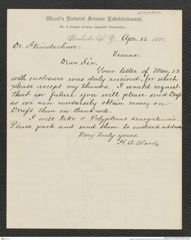 Ward's Natural Science Establishment,
No. 2 College Avenue, opposite University.
Rochester, N. Y. Apr. 15. 1885
Dr. Steindachner
Vienna.
Dear Sir,
Your letter of Mar. 22
with enclosure was duly received, for which
please accept my thanks. I would request
that in future you will please send Draft
as we can universally obtain money on
Draft than on bank note.
I will take 2 Polypterus senegalensis
Please pack and send them to enclosed address
Very truly yours
H. A. Ward